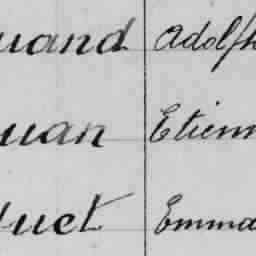 uand Adolph
uan Etienn
uet Emma